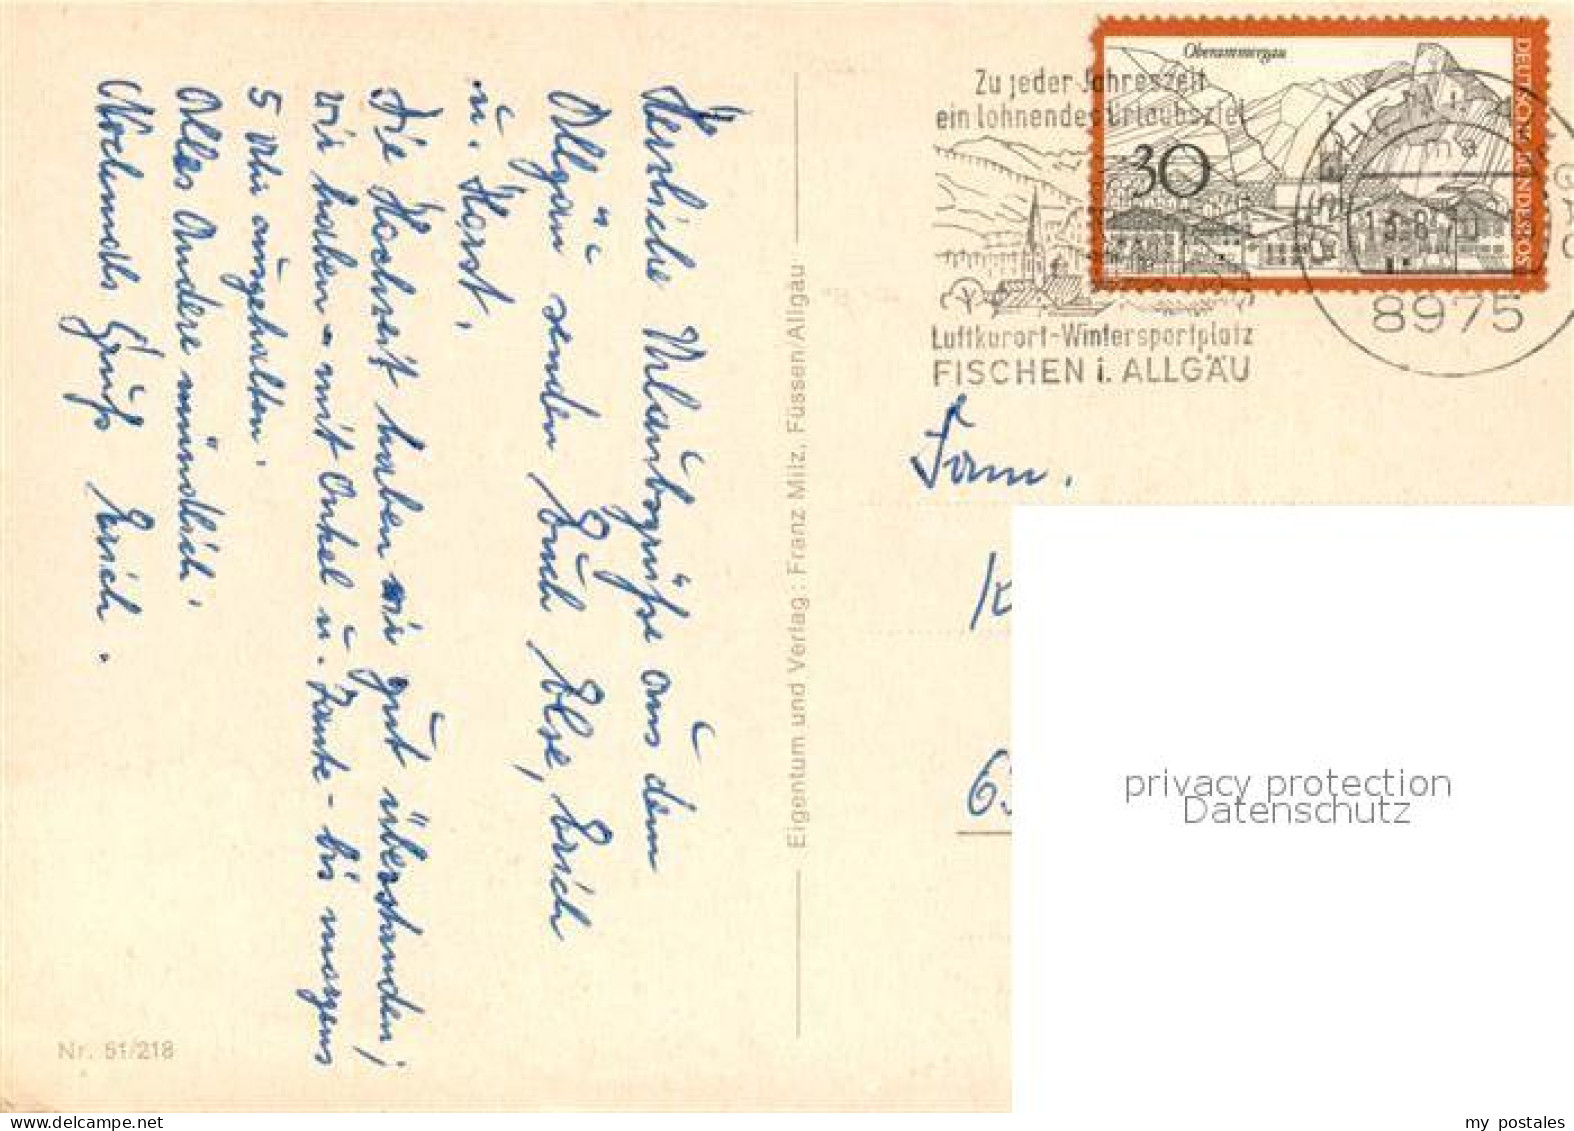 Herzliche Urlaubsgrüße aus dem
Allgäu senden Euch Else, Erich
u. Horst.
Die Hochzeit haben wir gut überstanden;
wir haben - mit Onkel u. Tante - bis morgens
5 Uhr ausgehalten.
Alles Andere mündlich.
Nochmals Gruß Erich.
Nr. 51/218
Eigentum und Verlag: Franz Milz, Füssen/Allgäu
Zu jeder Jahreszeit
ein lohnendes Urlaubsziel
Luftkurort-Wintersportplatz
FISCHEN i. ALLGÄU
Oberammergau
30
DEUTSCHE BUNDESPOST
8975
Fam.
privacy protection
Datenschutz
my postales